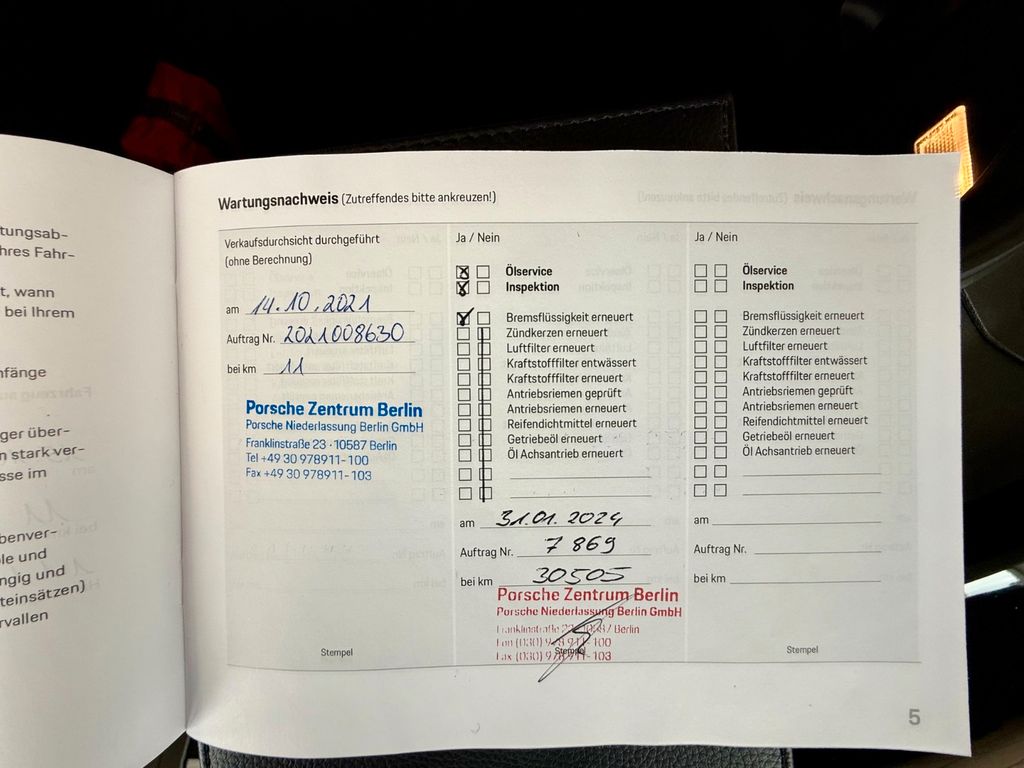 tungsab-
hres Fahr-
t, wann
bei Ihrem
nfänge
ger über-
n stark ver-
sse im
benver-
ole und
ngig und
teinsätzen)
rvallen
Wartungsnachweis (Zutreffendes bitte ankreuzen!)
Verkaufsdurchsicht durchgeführt
(ohne Berechnung)
am 14.10.2021
Auftrag Nr. 2021008630
bei km 11
Porsche Zentrum Berlin
Porsche Niederlassung Berlin GmbH
Franklinstraße 23 · 10587 Berlin
Tel +49 30 978911-100
Fax +49 30 978911-103
Stempel
Ja / Nein
Ölservice
Inspektion
Bremsflüssigkeit erneuert
Zündkerzen erneuert
Luftfilter erneuert
Kraftstofffilter entwässert
Kraftstofffilter erneuert
Antriebsriemen geprüft
Antriebsriemen erneuert
Reifendichtmittel erneuert
Getriebeöl erneuert
Öl Achsantrieb erneuert
am 31.01.2024
Auftrag Nr. 7869
bei km 30505
Porsche Zentrum Berlin
Porsche Niederlassung Berlin GmbH
Franklinstraße 23 · 10587 Berlin
Fon (030) 978911-100
Fax (030) 978911-103
Stempel
Ja / Nein
Ölservice
Inspektion
Bremsflüssigkeit erneuert
Zündkerzen erneuert
Luftfilter erneuert
Kraftstofffilter entwässert
Kraftstofffilter erneuert
Antriebsriemen geprüft
Antriebsriemen erneuert
Reifendichtmittel erneuert
Getriebeöl erneuert
Öl Achsantrieb erneuert
am
Auftrag Nr.
bei km
Stempel
5